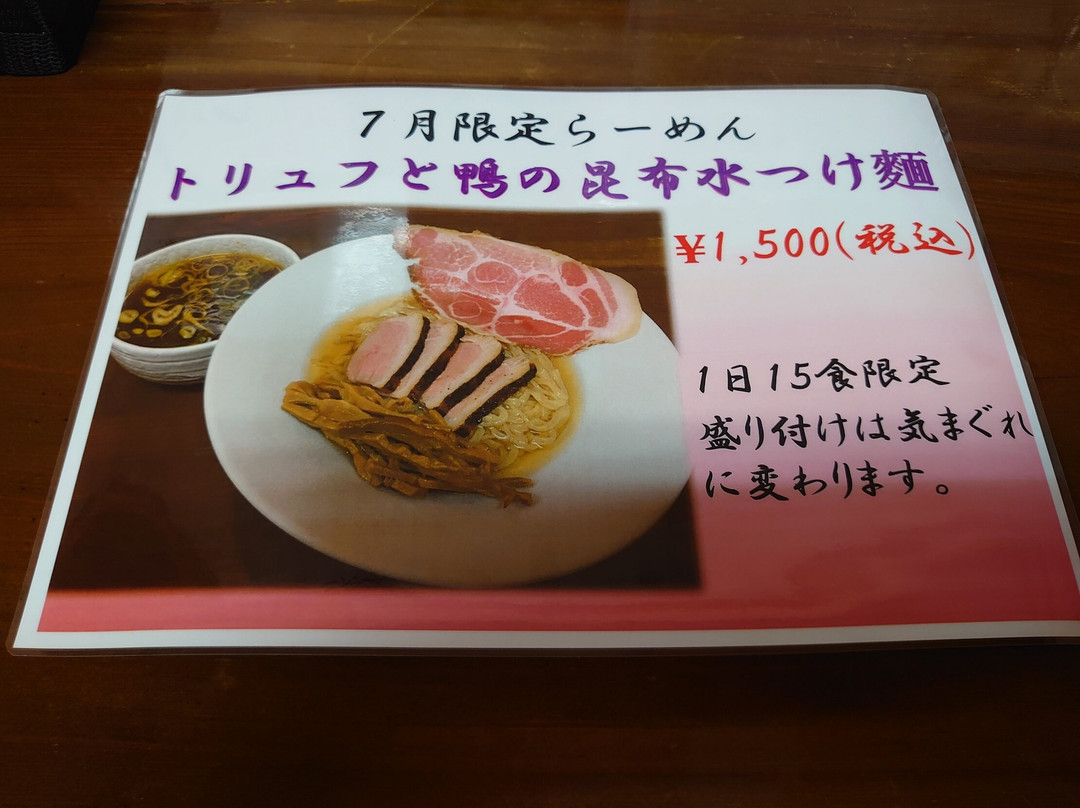 7月限定らーめん
トリュフと鴨の昆布水つけ麺
¥1,500(税込)
1日15食限定
盛り付けは気まぐれ
に変わります。